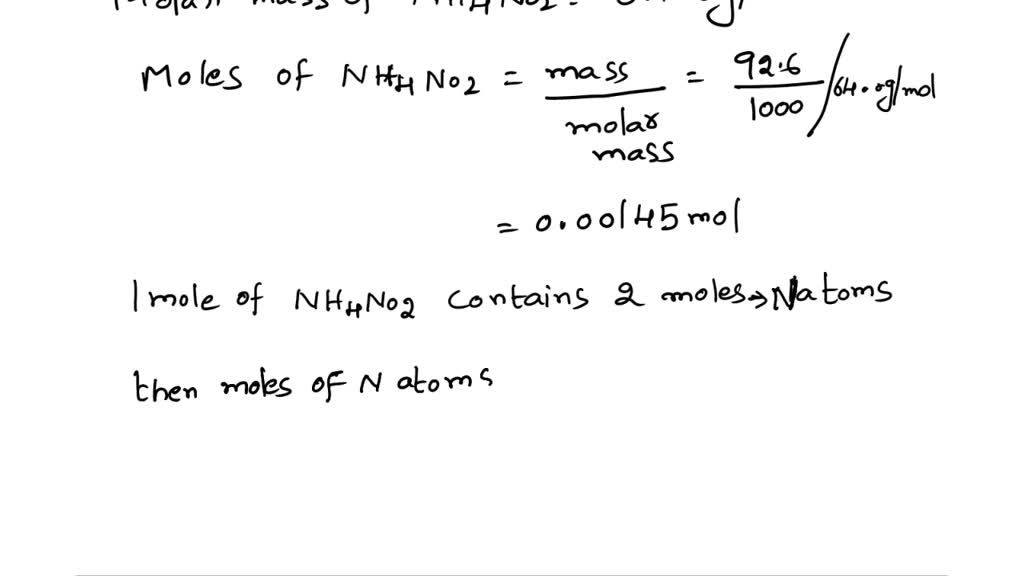 Molar mass of NH4NO2:
Moles of NH4NO2 = mass / molar mass = 92.6 / 1000 / 64.0g/mol
= 0.00145 mol
1 mole of NH4NO2 contains 2 moles → N atoms
then moles of N atoms